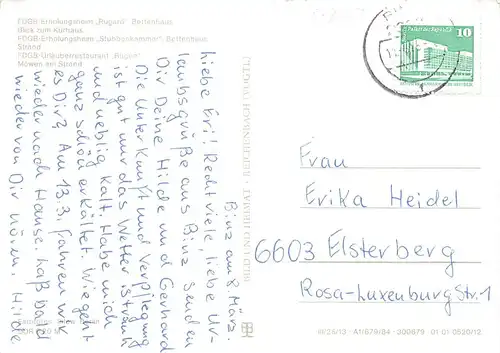 FDGB-Erholungsheim „Rugard“ Bettenhaus
Blick zum Kurhaus
FDGB-Erholungsheim „Stubbenkammer“, Bettenhaus
Strand
FDGB-Urlauberrestaurant „Rügen“
Möwen am Strand
10
Binz am 8. März.
Liebe Eri! Recht viele, liebe Ur-
laubsgrüße aus Binz senden
Dir Deine Hilde und Gerhard
Die Unterkunft und Verpflegung
ist gut nur das Wetter ist trüb
und neblig kalt. Habe mich
ganz schön erkältet. Wie geht
es Dir? Am 13.3. fahren wir
wieder nach Hause. Laß bald
wieder von Dir hören. Hilde
Frau
Erika Heidel
6603 Elsterberg
Rosa-Luxenburg Str. 1
III/26/13 · A1/679/84 · 300679 01 01 0520/12